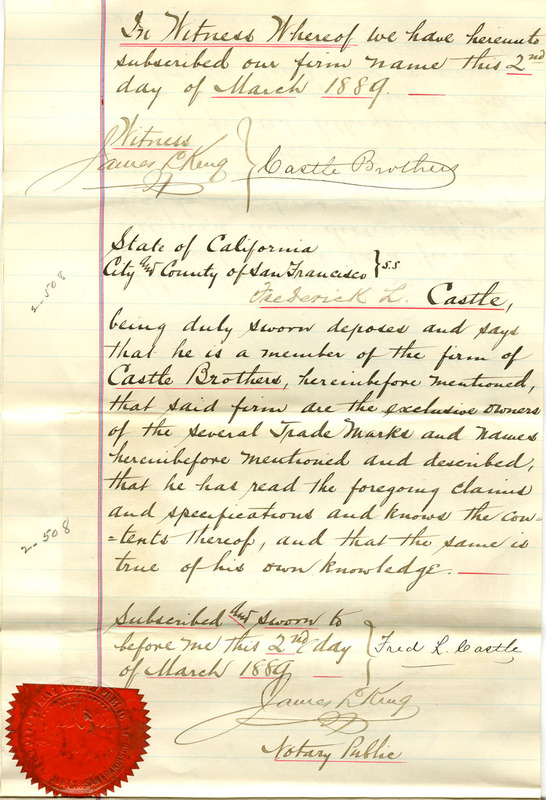 In Witness Whereof we have hereunto
subscribed our firm name this 2nd
day of March 1889.
Witness
James L King } Castle Brothers
State of California
City and County of San Francisco } S.S
Frederick L. Castle,
being duly sworn deposes and says
that he is a member of the firm of
Castle Brothers, hereinbefore mentioned,
that said firm are the exclusive owners
of the several Trade Marks and names
hereinbefore mentioned and described,
that he has read the foregoing claims
and specifications and knows the con-
-tents thereof, and that the same is
true of his own knowledge.
2-508
2-508
Subscribed and sworn to
before me this 2nd day } Fred L. Castle
of March 1889
James L King
Notary Public